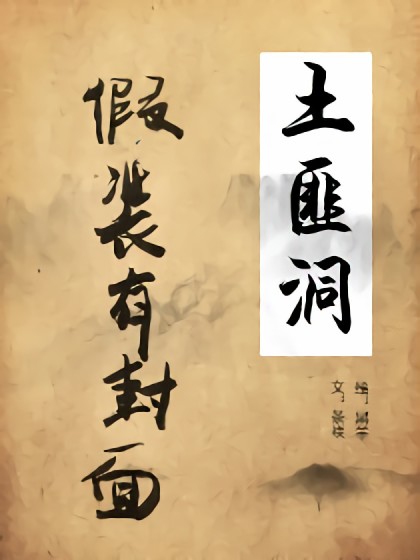 土匪洞
假装有封面